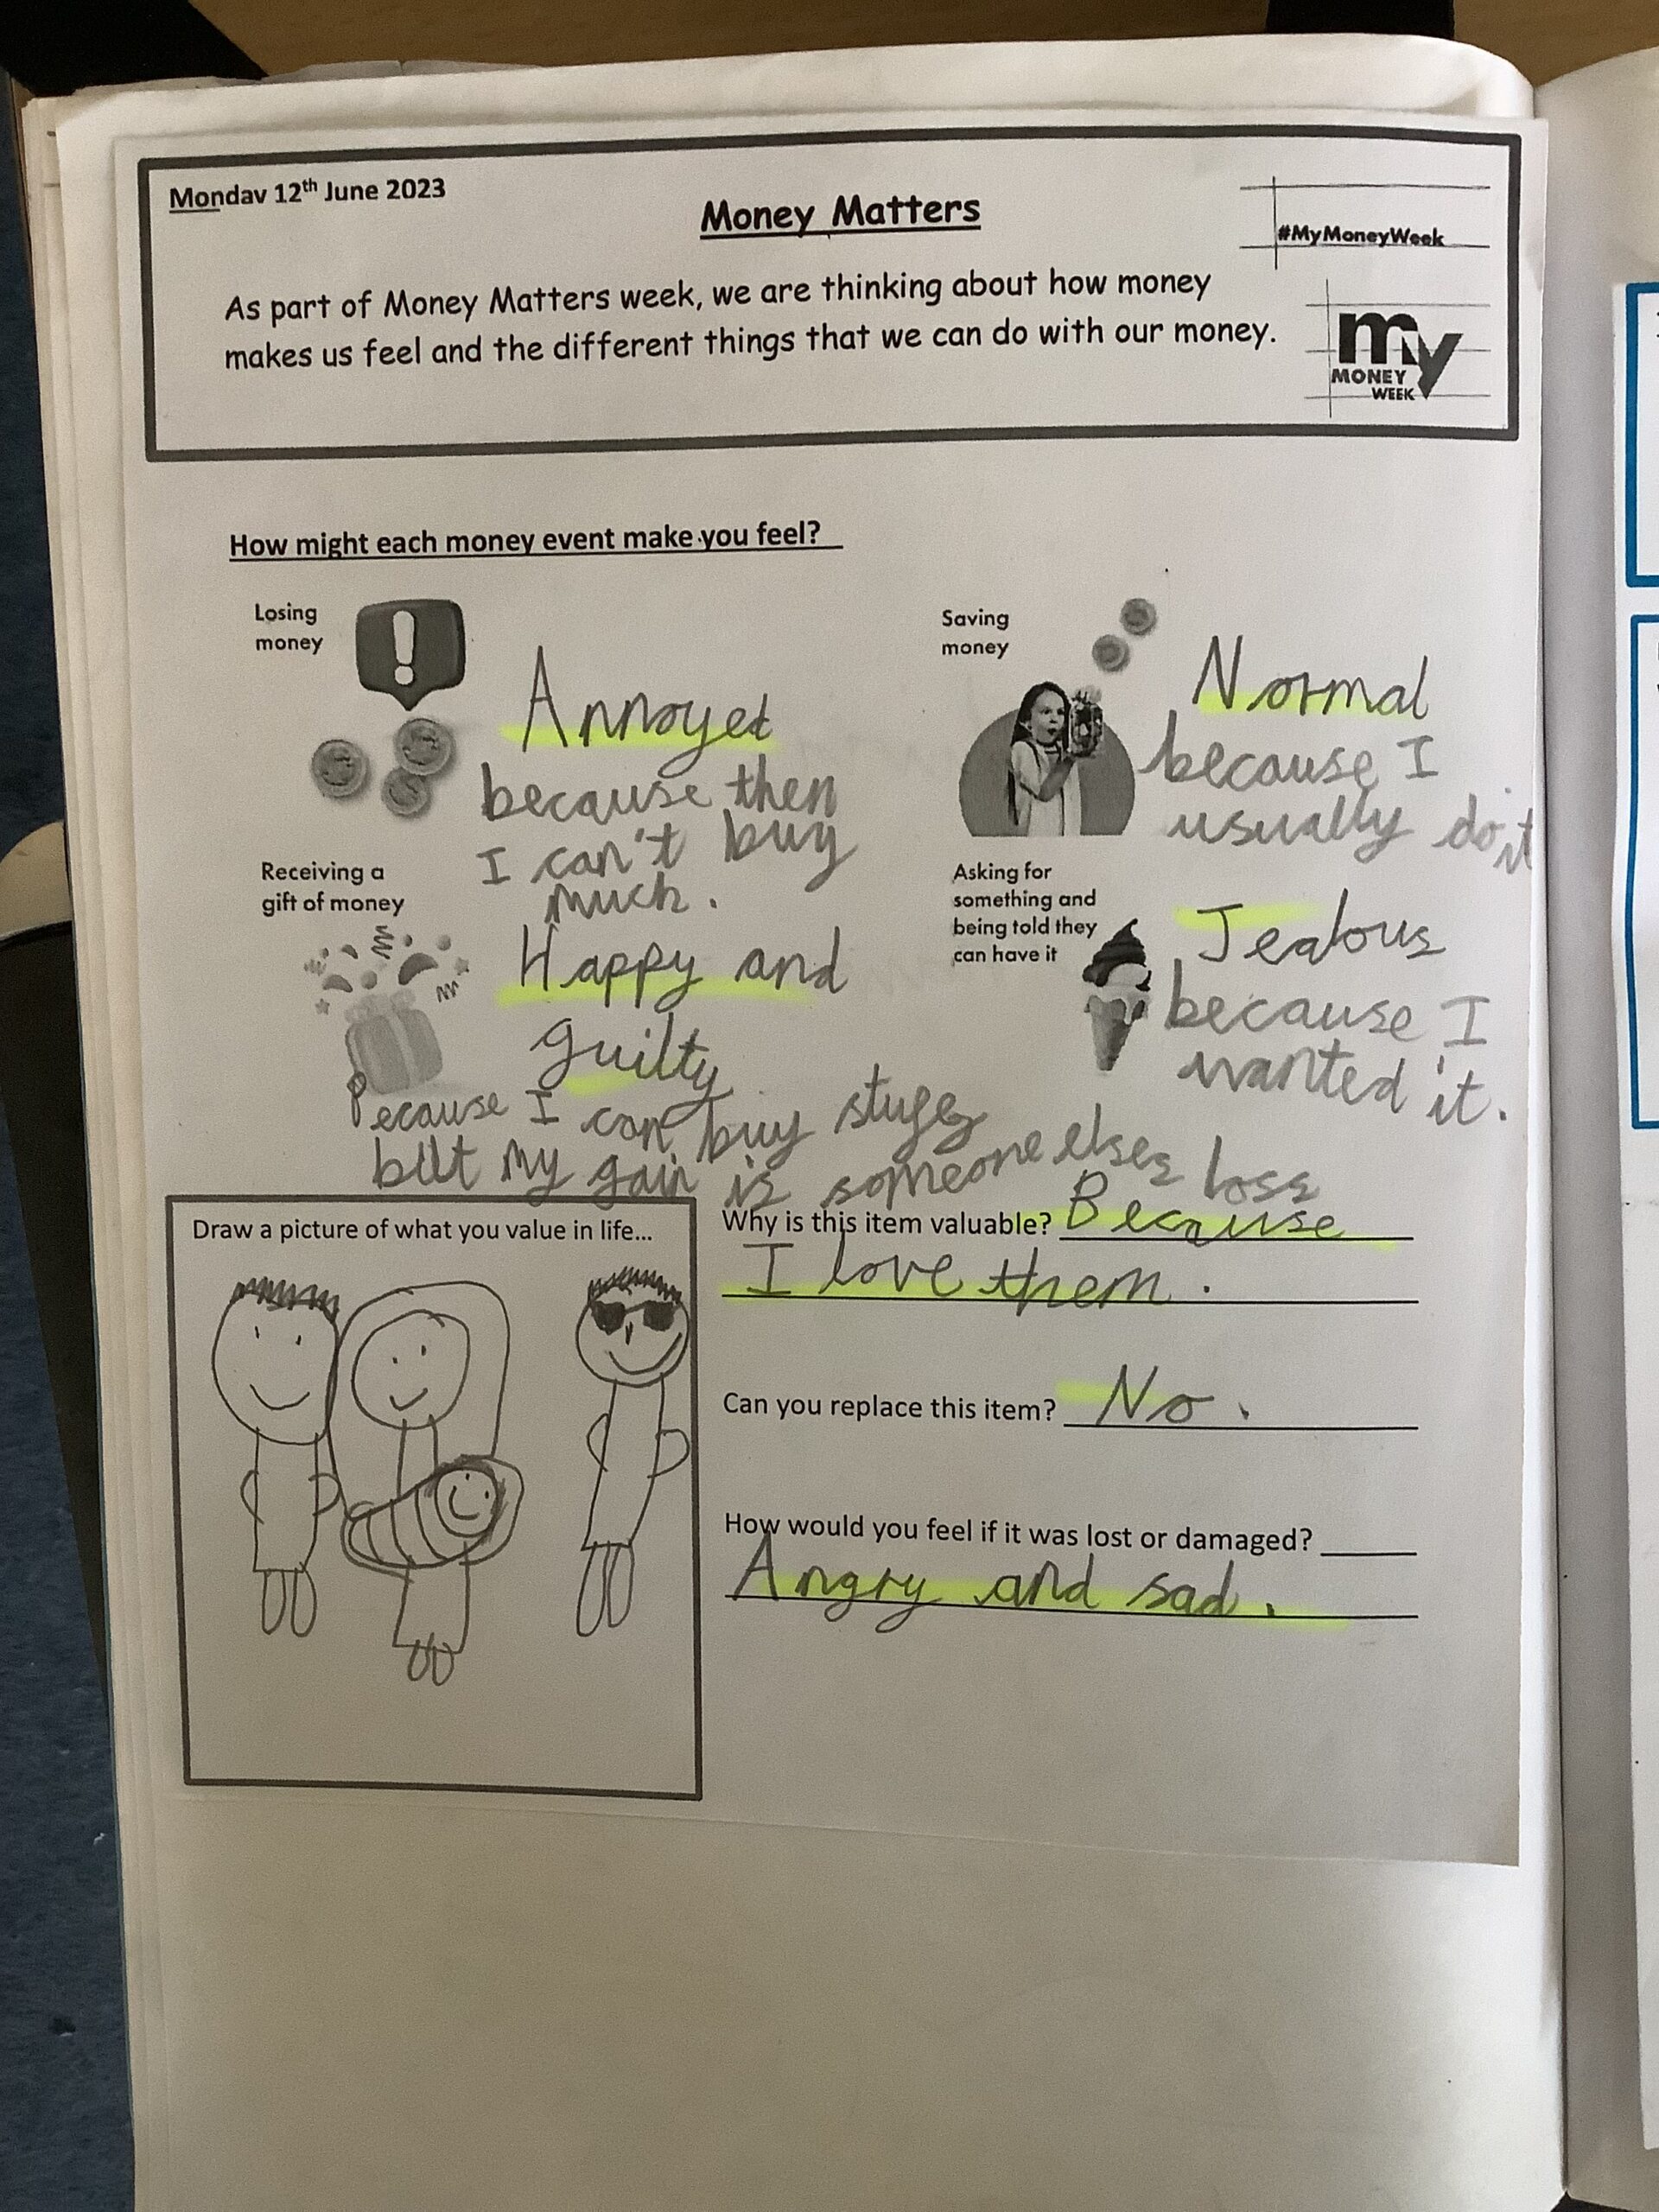 Monday 12th June 2023
Money Matters
#MyMoneyWeek
As part of Money Matters week, we are thinking about how money
makes us feel and the different things that we can do with our money.
my
MONEY
WEEK
How might each money event make you feel?
Losing
money
Annoyed
because then
I can't buy
much.
Saving
money
Normal
because I
usually don't
Receiving a
gift of money
Happy and
guilty
Because I can buy stuff
but my gain is someone elses loss
Asking for
something and
being told they
can have it
Jealous
because I
wanted it.
Draw a picture of what you value in life...
Why is this item valuable? Because
I love them.
Can you replace this item? No.
How would you feel if it was lost or damaged?
Angry and sad.